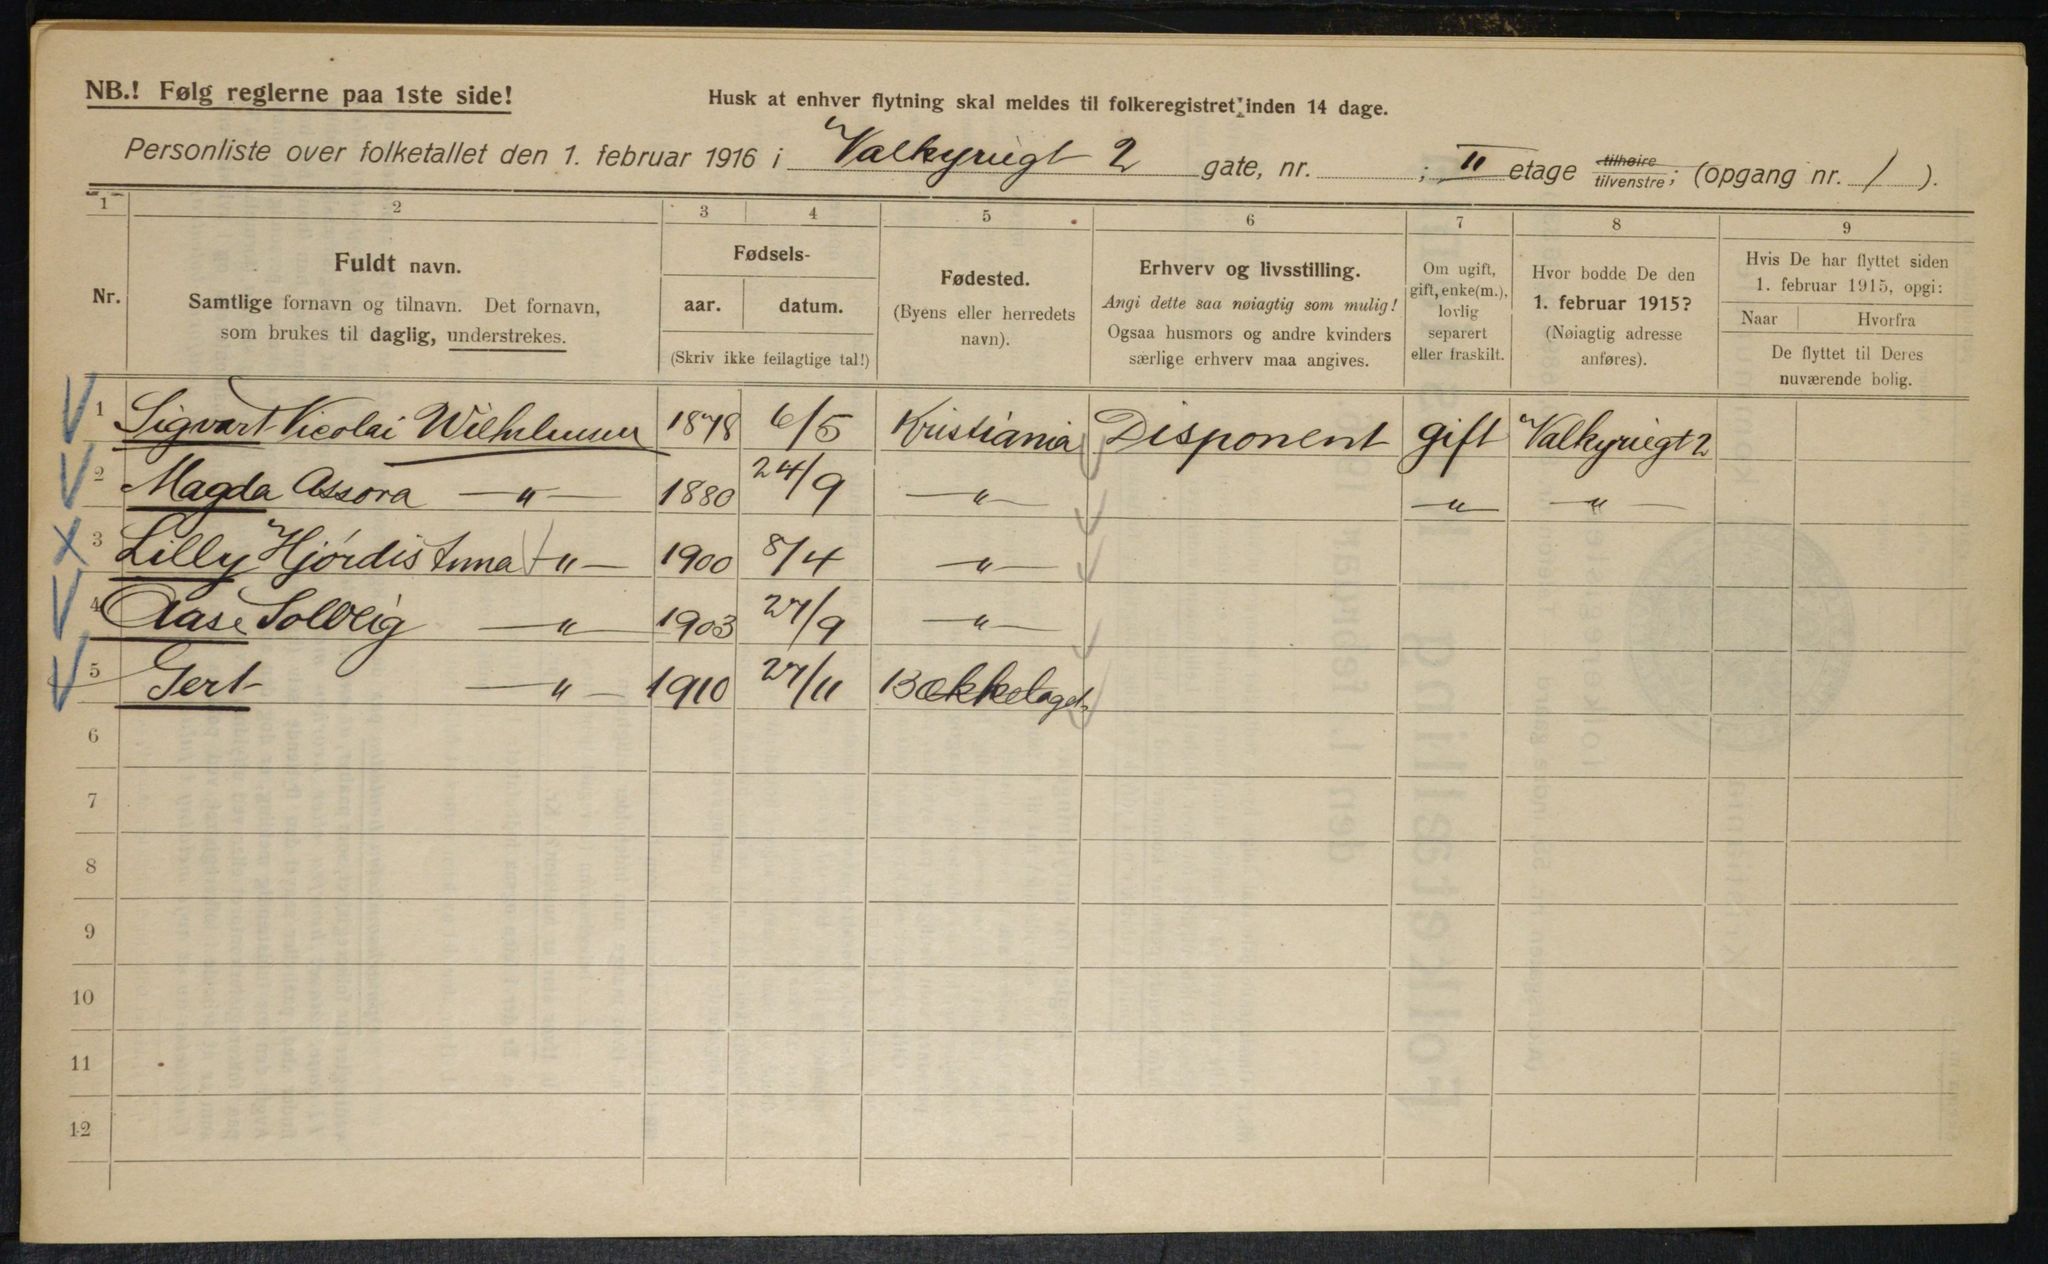 NB.! Følg reglerne paa 1ste side!
Husk at enhver flytning skal meldes til folkeregistret inden 14 dage.
Personliste over folketallet den 1. februar 1916 i Valkyriegt 2 gate, nr. ; II etage tilhøire tilvenstre; (opgang nr. 1 ).
1 2 3 4 5 6 7 8 9
Nr.
Fuldt navn.
Samtlige fornavn og tilnavn. Det fornavn,
som brukes til daglig, understrekes.
Fødsels-
aar. datum.
(Skriv ikke feilagtige tal!)
Fødested.
(Byens eller herredets
navn).
Erhverv og livsstilling.
Angi dette saa nøiagtig som mulig!
Ogsaa husmors og andre kvinders
særlige erhverv maa angives.
Om ugift,
gift, enke(m.),
lovlig
separert
eller fraskilt.
Hvor bodde De den
1. februar 1915?
(Nøiagtig adresse
anføres).
Hvis De har flyttet siden
1. februar 1915, opgi:
Naar Hvorfra
De flyttet til Deres
nuværende bolig.
1 Sigvart Nicolai Wilhelmsen 1878 6/5 Kristiania Disponent gift Valkyriegt 2
2 Magda Assora —"— 1880 24/9 —"— —"— —"—
3 Lilly Hjørdis Anna —"— 1900 8/4 —"—
4 Aase Solveig —"— 1903 27/9 —"—
5 Gert —"— 1910 27/11 Bækkelaget
6
7
8
9
10
11
12